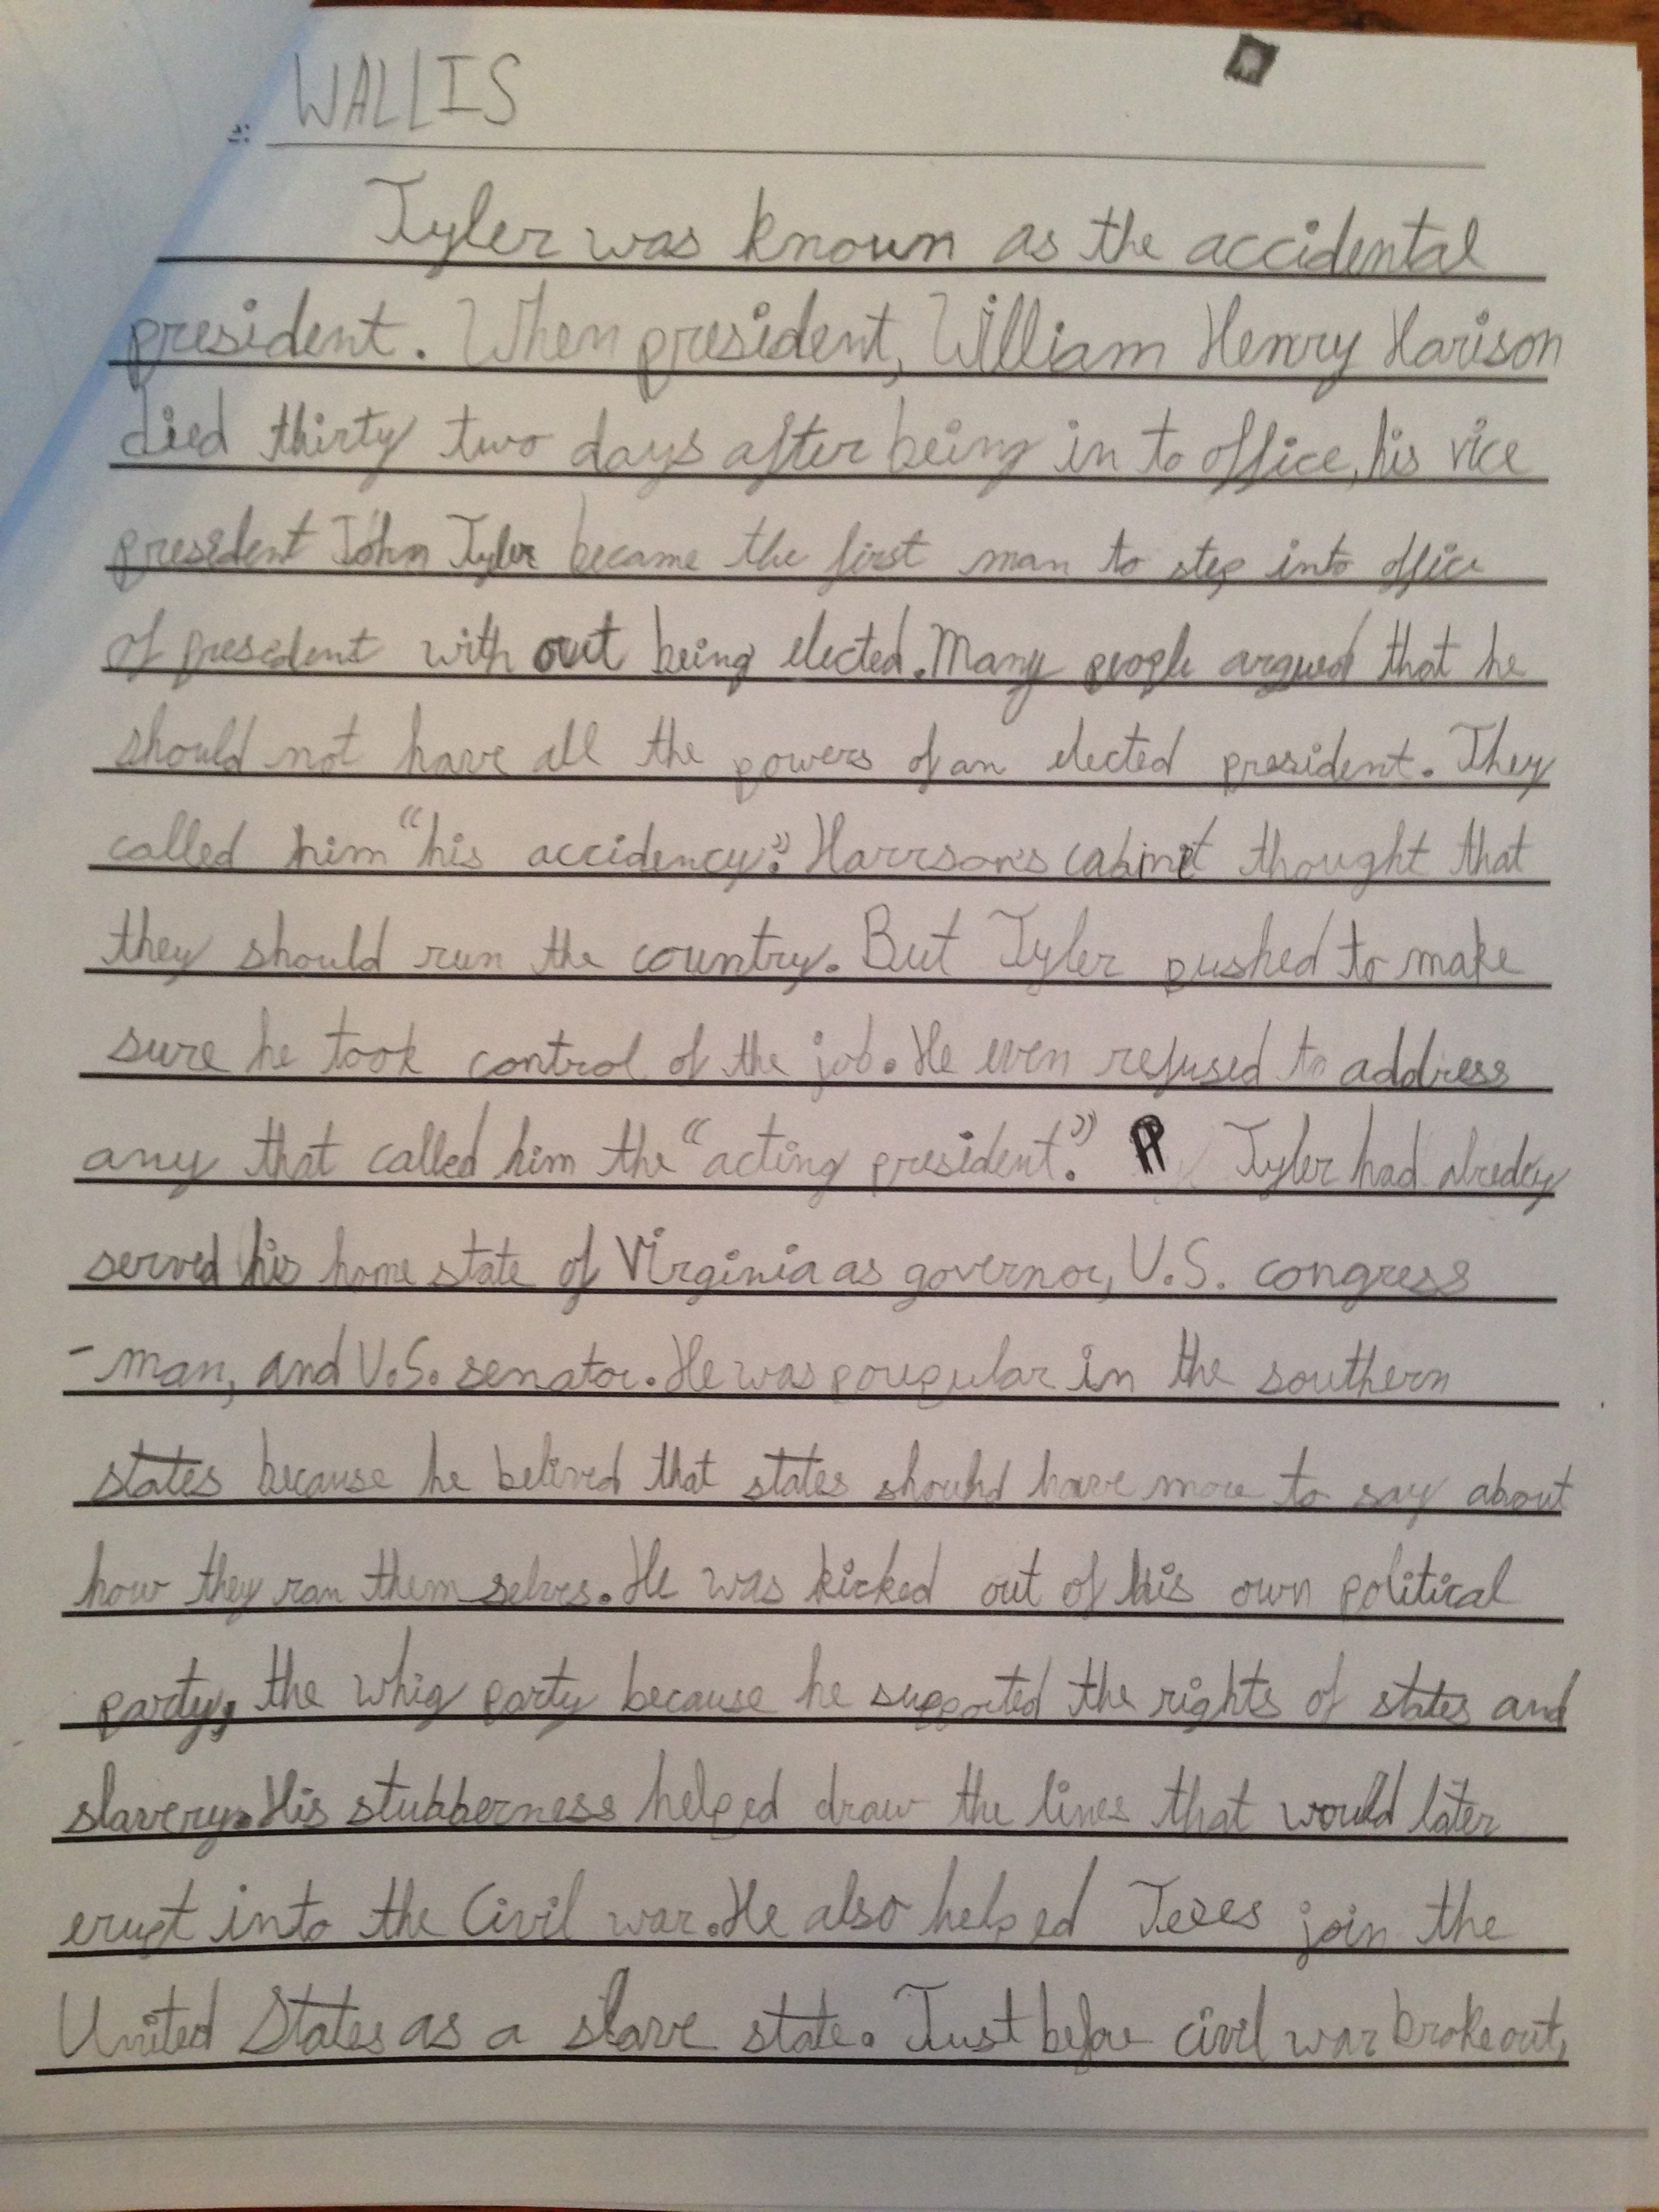 WALLIS
Tyler was known as the accidental
president. When president, William Henry Harison
died thirty two days after being in to office, his vice
president John Tyler became the first man to step into office
of president with out being elected. Many people argued that he
should not have all the powers of an elected president. They
called him "his accidency." Harrson's cabinet thought that
they should run the country. But Tyler pushed to make
sure he took control of the job. He even refused to address
any that called him the "acting president." P Tyler had alredey
served his home state of Virginia as governor, U.S. congress
-man, and U.S. senator. He was poupular in the southern
states because he belived that states should have more to say about
how they ran them selves. He was kicked out of his own political
party, the whig party because he supported the rights of states and
slavery. His stubberness helped draw the lines that would later
erupt into the Civil war. He also helped Texes join the
United States as a slave state. Just before civil war broke out,